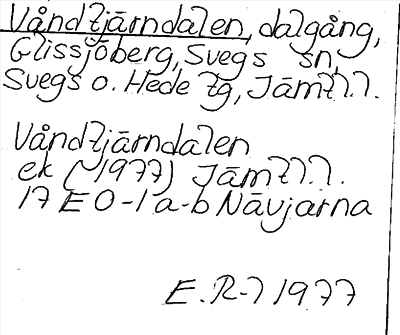 Våndtjärndalen, dalgång,
Glissjöberg, Svegs sn,
Svegs o. Hede tg, Jämtl.l.
Våndtjärndalen
ek (~1977) Jämtl.l.
17 E 0-1 a-b Nävjarna
E. R-l 1977